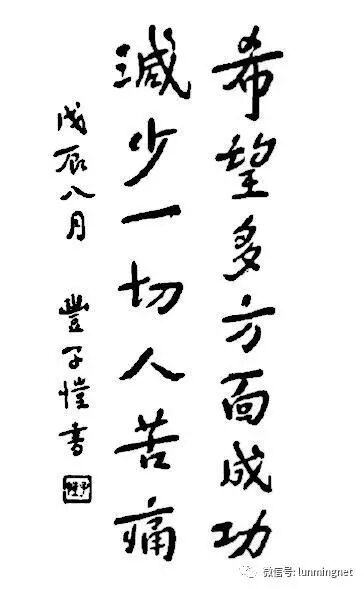 希望多方面成功
減少一切人苦痛
戊辰八月 豐子愷書
微信号: lunmingnet